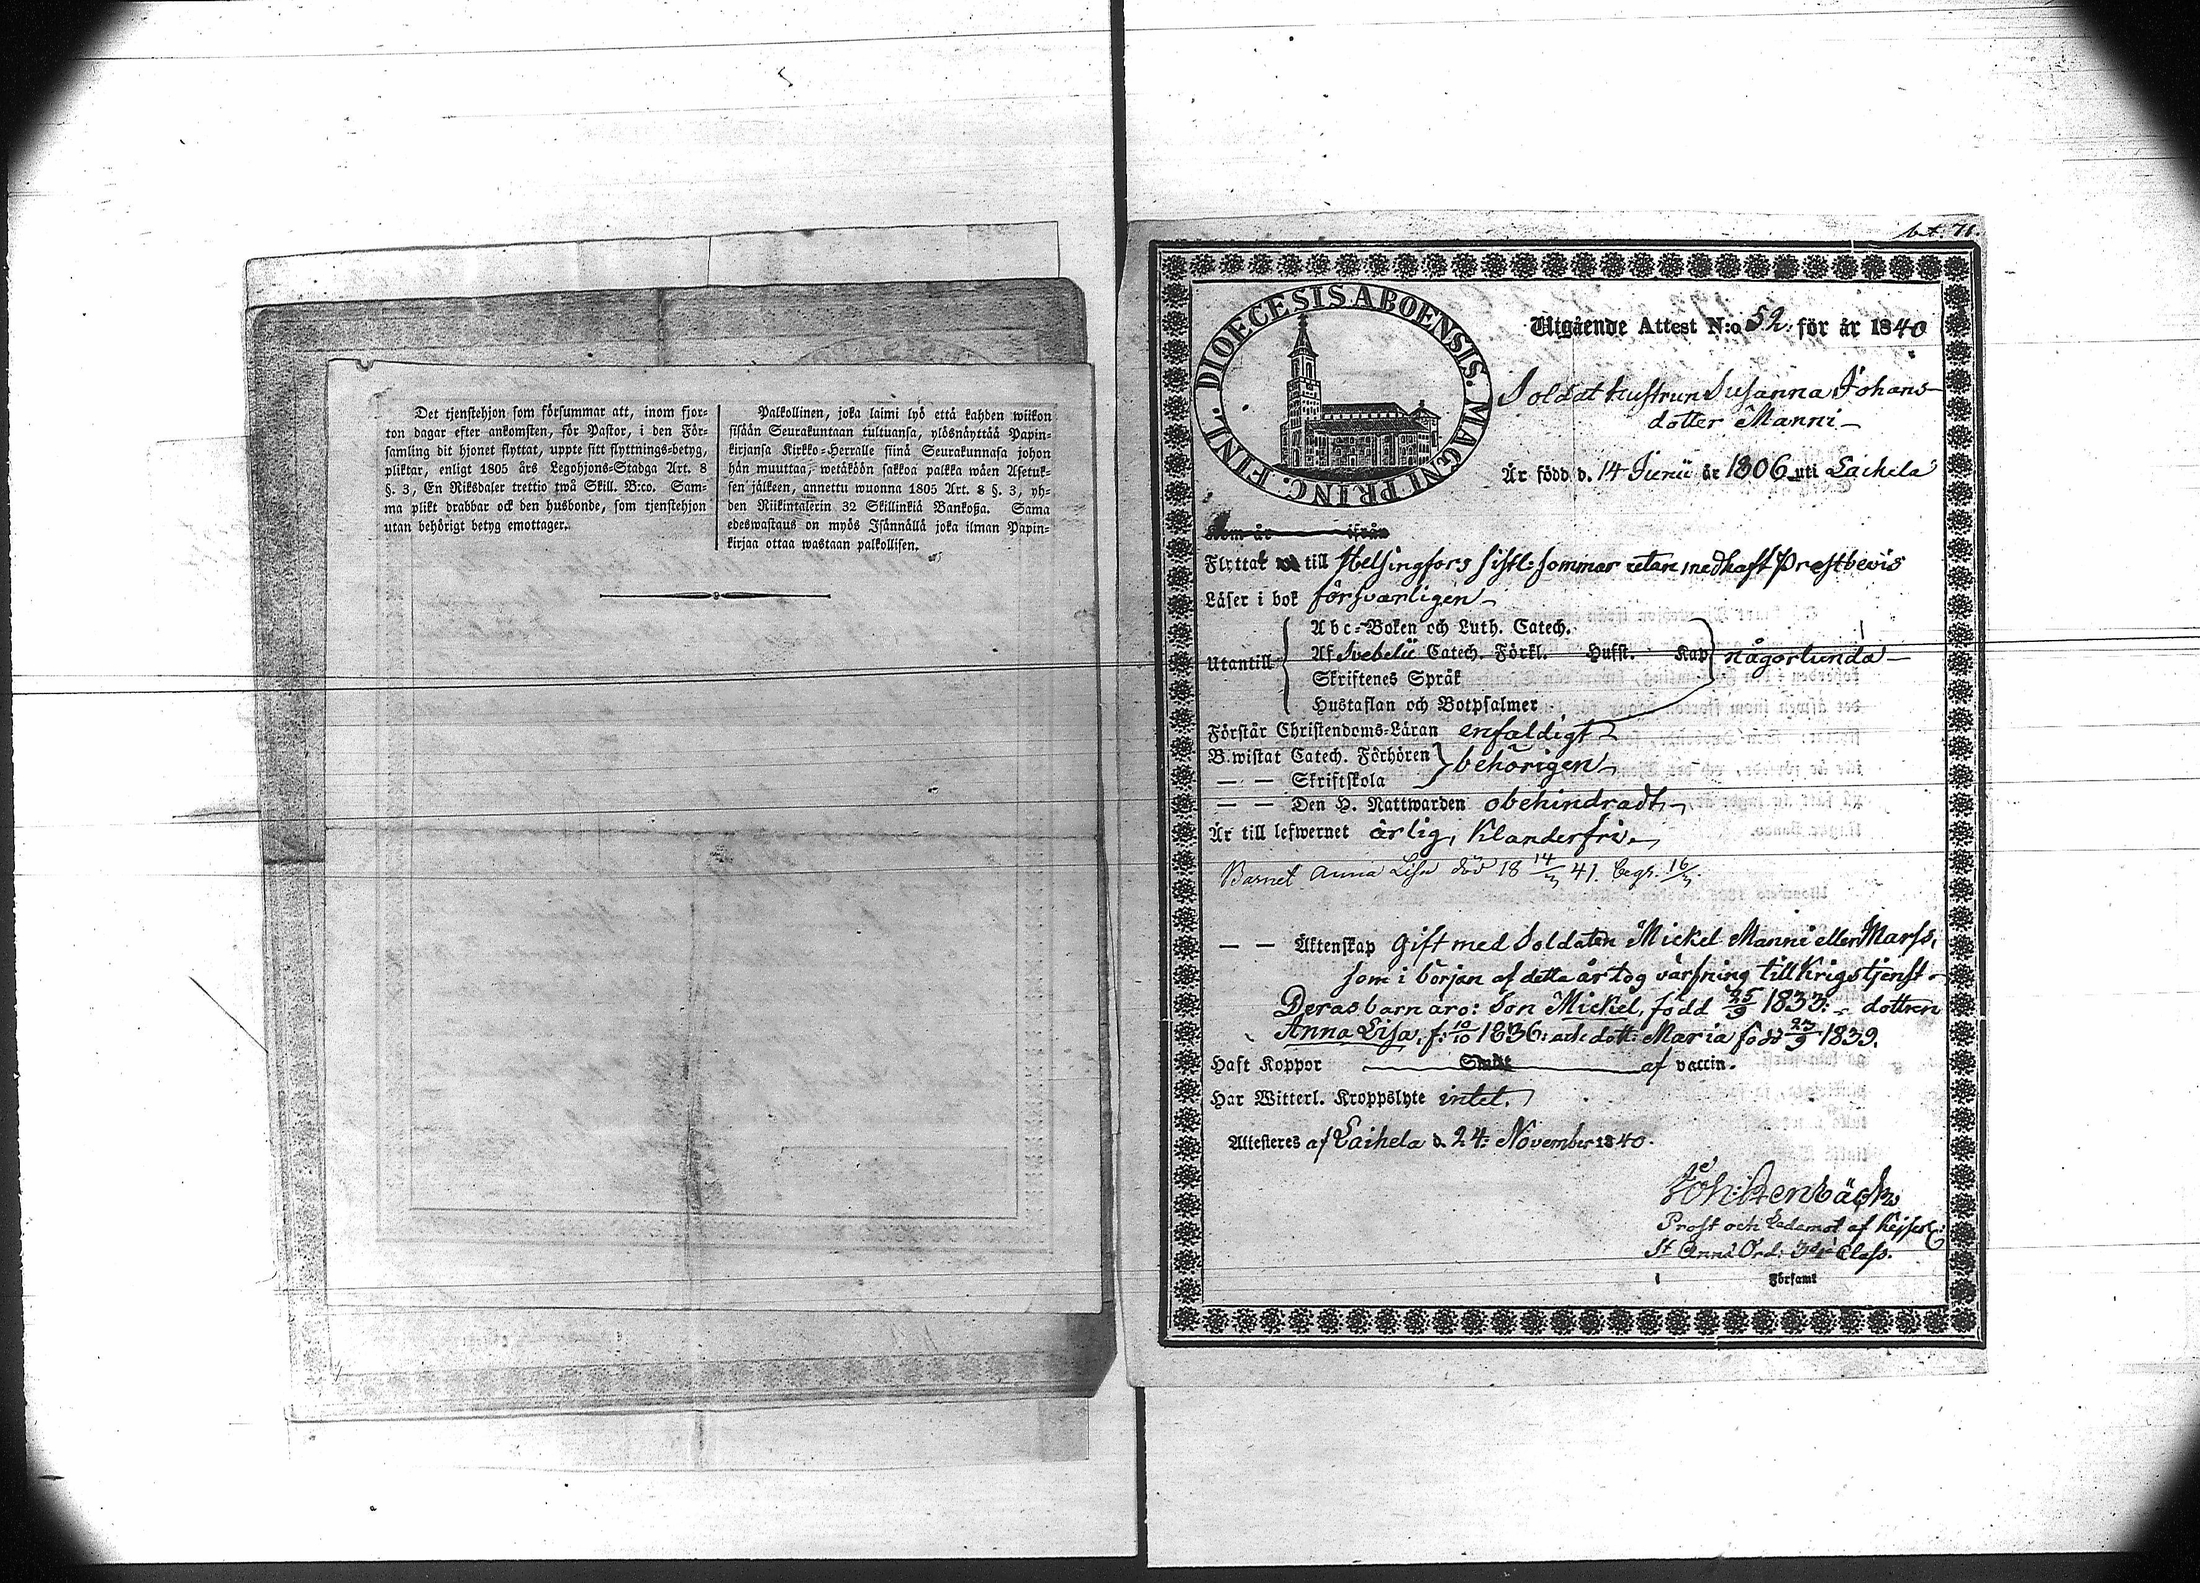 Det tjenstehjon som försummar att, inom fjor-
ton dagar efter ankomsten, för Pastor, i den För-
samling dit hjonet flyttat, uppte sitt flyttnings-betyg,
pliktar, enligt 1805 års Legohjons-Stadga Art. 8
§. 3, En Riksdaler trettio twå Skill. B:co. Sam-
ma plikt drabbar ock den husbonde, som tjenstehjon
utan behörigt betyg emottager.
Palkollinen, joka laimi lyö että kahden wiikon
sisään Seurakuntaan tultuansa, ylösnäyttää Papin-
kirjansa Kirkko-Herralle siinä Seurakunnasa johon
hän muuttaa, wetäköön sakkoa palkka wäen Asetuk-
sen jälkeen, annettu wuonna 1805 Art. 8 §. 3, yh-
den Riikintalerin 32 Skillinkiä Bankoßa. Sama
edeswastaus on myös Isännällä joka ilman Papin-
kirjaa ottaa wastaan palkollisen.
bet. 71.
FINL. DIOECESIS ABOENSIS. MAGNI PRINC.
Utgående Attest N:o 52. för år 1840
Soldat hustrun Susanna Johans-
dotter Manni
Är född d. 14 Junii år 1806 uti Laihela
Kom år ifrån
Flyttat till Helsingfors sistl: sommar utan medhaft Prestbevis
Läser i bok försvarligen
Abc-Boken och Luth. Catech.
Utantill Af Svebelii Catech. Förkl. Husst. Kap någorlunda
Skriftenes Språk
Hustaflan och Botpsalmer
Förstår Christendoms-Läran enfaldigt
B.wistat Catech. Förhören behörigen
— — Skriftskola
— — Den H. Nattwarden obehindradt
Är till lefwernet ärlig, klanderfri
Barnet Anna Lisa död 18 14/3 41. begr. 16/3.
— — Äktenskap gift med Soldaten Mickel Manni eller Marss,
som i början af detta år tog värfning till Krigstjenst
Deras barn äro: Son Mickel, född 25/9 1833: dottren
Anna Lisa, f: 10/10 1836: och dott: Maria född 23/9 1839.
Haft Koppor Smitt af vaccin.
Har Witterl. Kroppslyte intet.
Attesteres af Laihela d. 24: November 1840.
Joh: Kenbäck
Prost och Ledamot af Kejserl:
St Annæ Ord: 3dje Class.
i Församl